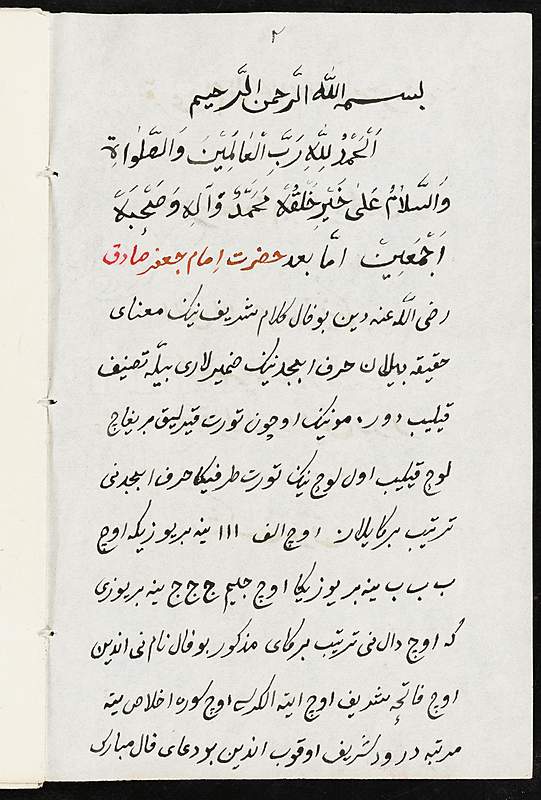 ٢
بسم الله الرحمن الرحيم
اَلْحَمْدُ لِلّٰهِ رَبِّ الْعَالَمِيْنَ وَالصَّلٰواة
وَالسَّلَامُ عَلىٰ خَيْرِ خَلْقِهٖ مُحَمَّدٌ وَآلِهٖ وَصَحْبِهٖ
اَجْمَعِيْنَ امّا بعد حضرت اِمام جعفر صادق
رضى اللّٰه عنه دين بو فال كلام شريف نيك معناى
حقيقه بيلان حرف ابجد نيك ضميرلارى بيله تصنيف
قيليب دور. مونيك اوچون تورت قيرليق بر يغاچ
لوح قيليب اول لوح نيك تورت طرفيكا حرف ابجدنى
ترتيب بركايلان اوچ الف ااا ينه بر يوزيكه اوچ
ب ب ب ينه بر يوزيكا اوچ جيم ج ج ج ينه بر يوزى
كه اوچ دال نى ترتيب بركاى مذكور بو فال نام نى اندين
اوچ فاتحه شريف اوچ ايته الكرسى اوچ سوره اخلاص يته
مرتبه درود شريف اوقوب اندين بو دعاى فال مبارك